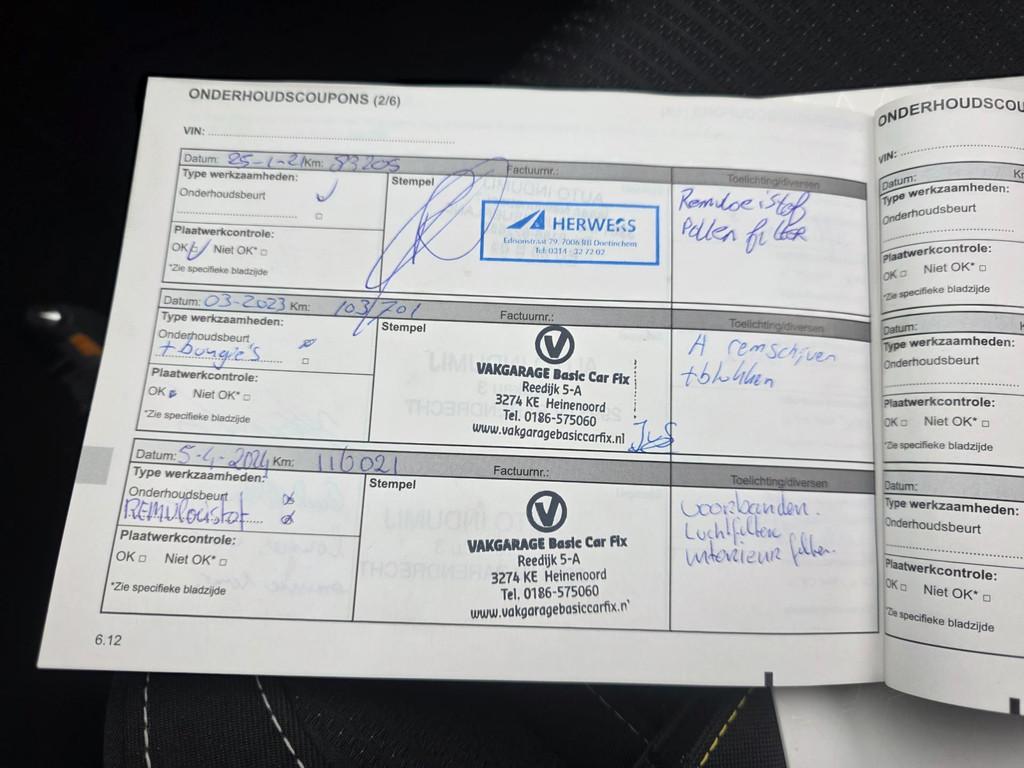 ONDERHOUDSCOUPONS (2/6)
VIN:
Datum: 25-1-21 Km: 83205 Factuurnr.: Toelichting/diversen
Type werkzaamheden:
Onderhoudsbeurt
Plaatwerkcontrole:
OK Niet OK*
*Zie specifieke bladzijde
Stempel
HERWERS
Edisonstraat 79, 7006 RB Doetinchem
Tel: 0314 - 32 72 02
Remvloeistof
Pollen filter
Datum: 03-2023 Km: 103701 Factuurnr.: Toelichting/diversen
Type werkzaamheden:
Onderhoudsbeurt
+ bougie's
Plaatwerkcontrole:
OK Niet OK*
*Zie specifieke bladzijde
Stempel
V
VAKGARAGE Basic Car Fix
Reedijk 5-A
3274 KE Heinenoord
Tel. 0186-575060
www.vakgaragebasiccarfix.nl
A remschijven
+ blokken
Datum: 5-4-2024 Km: 116021 Factuurnr.: Toelichting/diversen
Type werkzaamheden:
Onderhoudsbeurt
REMvloeistof
Plaatwerkcontrole:
OK Niet OK*
*Zie specifieke bladzijde
Stempel
V
VAKGARAGE Basic Car Fix
Reedijk 5-A
3274 KE Heinenoord
Tel. 0186-575060
www.vakgaragebasiccarfix.n
voorbanden.
Luchtfilter
interieur filter.
6.12
ONDERHOUDSCOU
VIN:
Datum: Km:
Type werkzaamheden:
Onderhoudsbeurt
Plaatwerkcontrole:
OK Niet OK*
*Zie specifieke bladzijde
Datum: Km:
Type werkzaamheden:
Onderhoudsbeurt
Plaatwerkcontrole:
OK Niet OK*
*Zie specifieke bladzijde
Datum:
Type werkzaamheden:
Onderhoudsbeurt
Plaatwerkcontrole:
OK Niet OK*
*Zie specifieke bladzijde